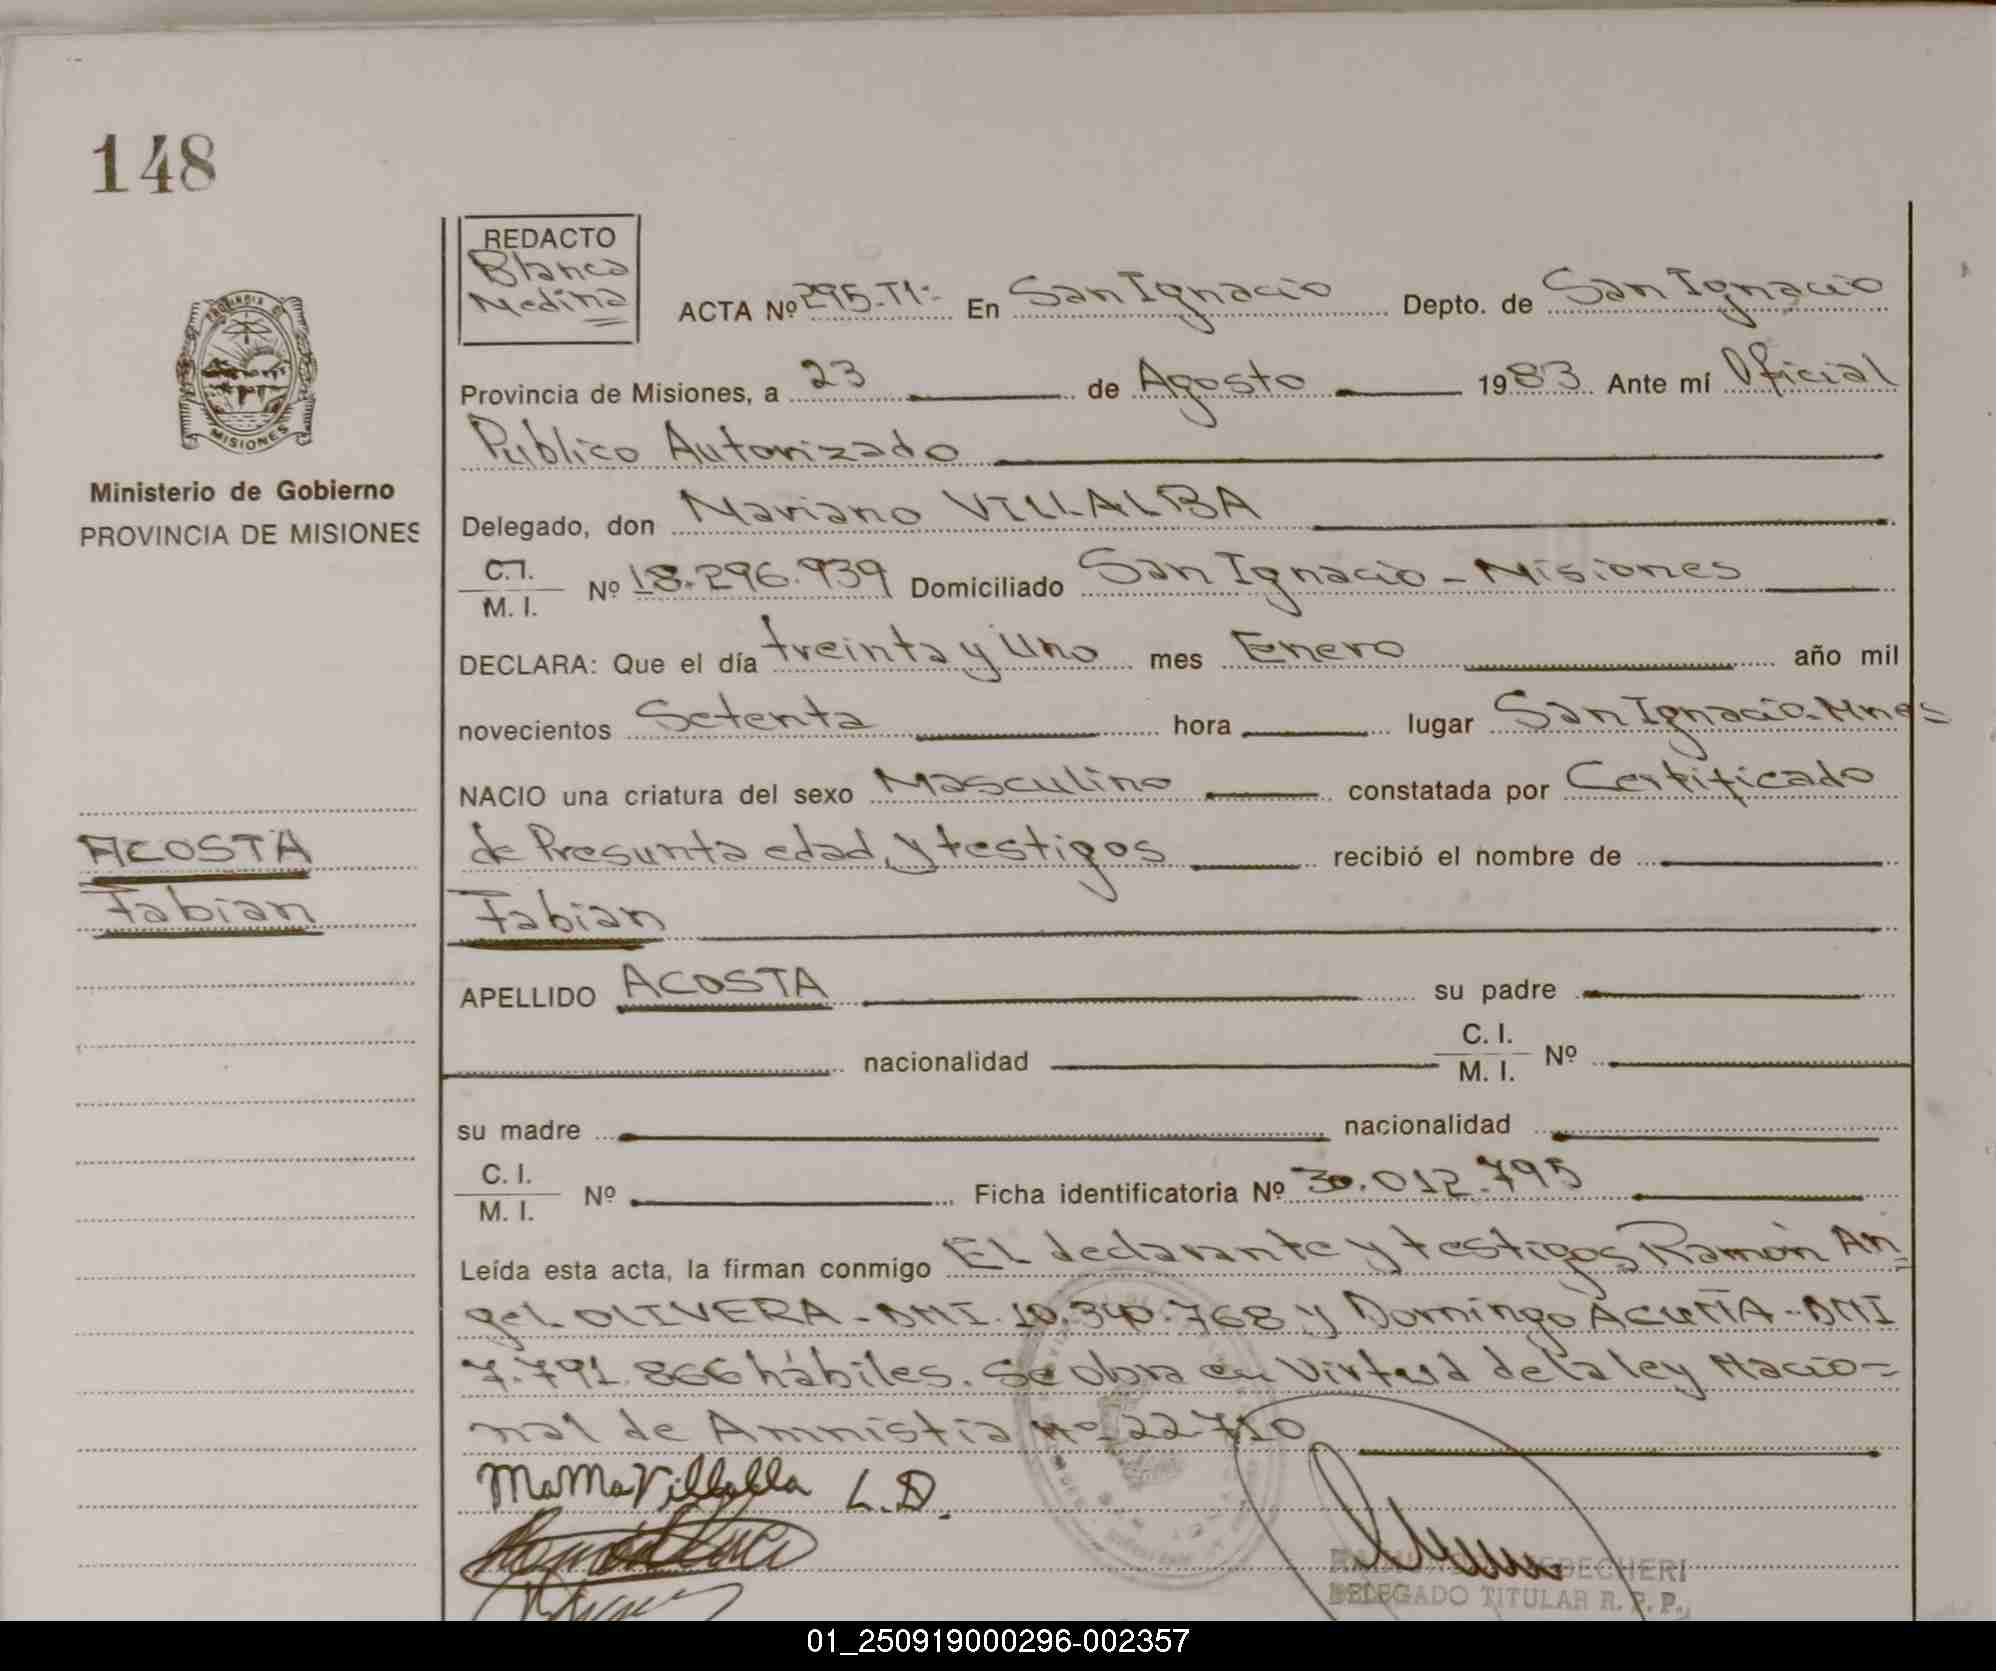 148
REDACTO
Blanca
Medina
ACTA Nº 295-T1- En San Ignacio Depto. de San Ignacio
Provincia de Misiones, a 23 de Agosto 1983 Ante mí Oficial
Público Autorizado
Delegado, don Mariano VILLALBA
C.I.
M. I. Nº 18.296.939 Domiciliado San Ignacio - Misiones
DECLARA: Que el día treinta y Uno mes Enero año mil
novecientos Setenta hora lugar San Ignacio-Mnes
NACIO una criatura del sexo Masculino constatada por Certificado
de Presunta edad, y testigos recibió el nombre de
Fabian
APELLIDO ACOSTA su padre
nacionalidad C. I.
M. I. Nº
su madre nacionalidad
C. I.
M. I. Nº Ficha identificatoria Nº 30.012.795
Leída esta acta, la firman conmigo EL declarante y testigos Ramón An-
gel OLIVERA - DNI. 10.340.768 y Domingo ACUÑA - DNI
7.791.866 hábiles. Se obra en Virtud de la ley Nacio=
nal de Amnistia nº 22710
MaMaVillalba L.D.
DECHERI
DELEGADO TITULAR R. P. P.
PROVINCIA
MISIONES
Ministerio de Gobierno
PROVINCIA DE MISIONES
ACOSTA
Fabian
01_250919000296-002357